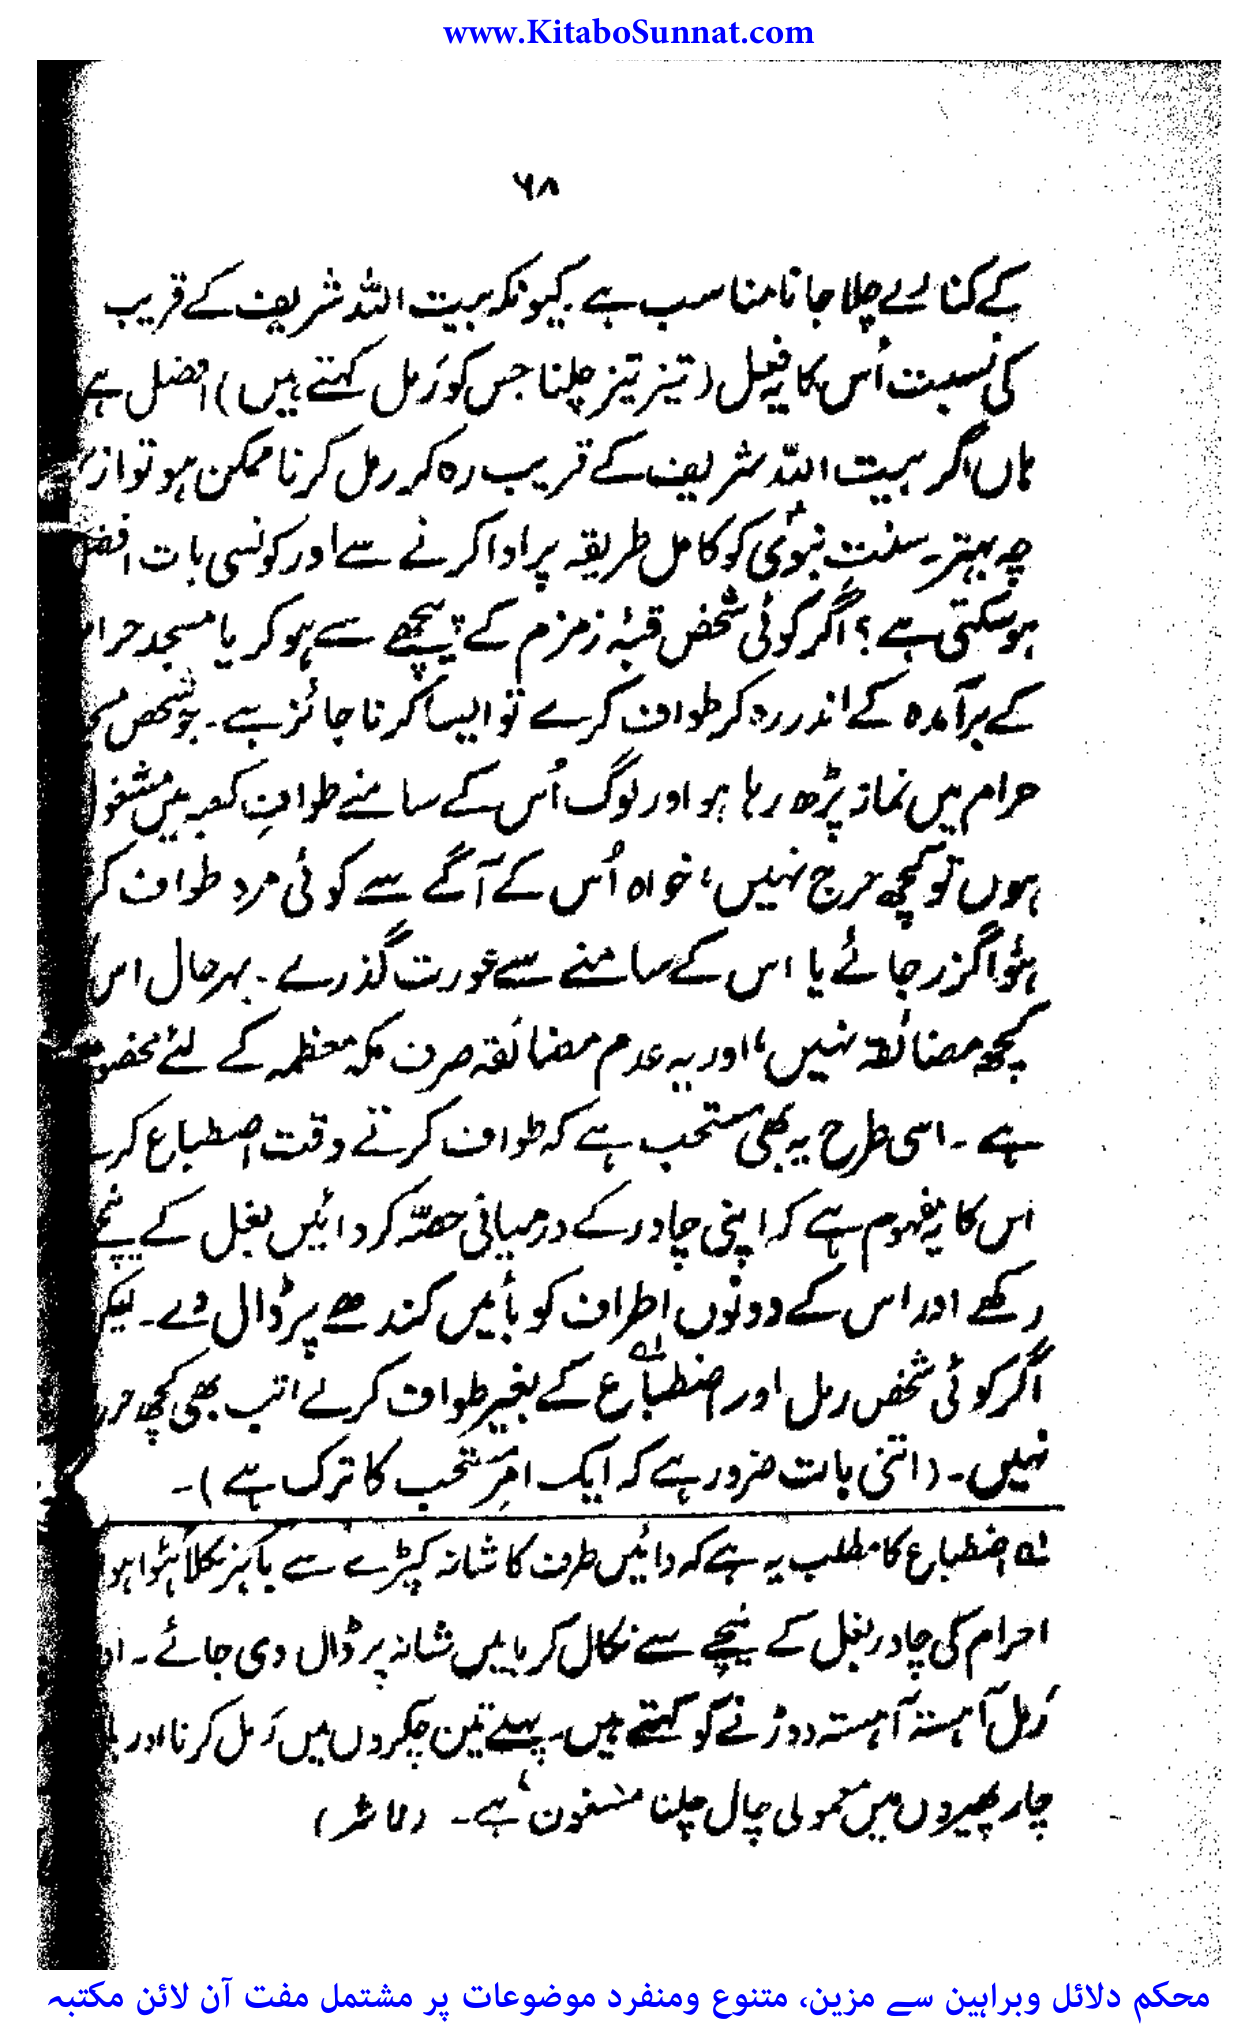 www.KitaboSunnat.com
۶۸
کے کنارے چلا جانا مناسب ہے کیونکہ بیت اللہ شریف کے قریب
کی نسبت اُس کا یہ فعل (تیز تیز چلنا جس کو رَمل کہتے ہیں) افضل ہے
ہاں اگر بیت اللہ شریف کے قریب رہ کر رمل کرنا ممکن ہو تو از
چہ بہتر۔ سنت نبویؐ کو کامل طریقہ پر ادا کرنے سے اور کونسی بات
ہو سکتی ہے؟ اگر کوئی شخص قبۂ زمزم کے پیچھے سے ہو کر یا مسجد حرام
کے برآمدہ کے اندر رہ کر طواف کرے تو ایسا کرنا جائز ہے۔ جو شخص
حرام میں نماز پڑھ رہا ہو اور لوگ اُس کے سامنے طوافِ کعبہ میں مشغول
ہوں تو کچھ حرج نہیں، خواہ اُس کے آگے سے کوئی مرد طواف
ہؤا گزر جائے یا اس کے سامنے سے عورت گذرے۔ بہرحال اس
کچھ مضائقہ نہیں، اور یہ عدم مضائقہ صرف مکہ معظمہ کے لئے
ہے۔ اسی طرح یہ بھی مستحب ہے کہ طواف کرتے وقت اضطباع کرے
اس کا یہ مفہوم ہے کہ اپنی چادر کے درمیانی حصّہ کر دائیں بغل کے نیچے
رکھے اور اس کے دونوں اطراف کو بائیں کندھے پر ڈال دے۔
اگر کوئی شخص رمل اور اضطباع۱ کے بغیر طواف کرلے تب بھی کچھ
نہیں۔ (اتنی بات ضرور ہے کہ ایک امرِ مستحب کا ترک ہے)۔
۱ اضطباع کا مطلب یہ ہے کہ دائیں طرف کا شانہ کپڑے سے باہر نکلا ہؤا ہو
احرام کی چادر بغل کے نیچے سے نکال کر بایں شانہ پر ڈال دی جائے۔
رَمل آہستہ آہستہ دوڑنے کو کہتے ہیں۔ پہلے تین چکروں میں رَمل کرنا اور
چار پھیروں میں معمولی چال چلنا مسنون ہے۔ (ناشر)
محکم دلائل وبراہین سے مزین، متنوع ومنفرد موضوعات پر مشتمل مفت آن لائن مکتبہ